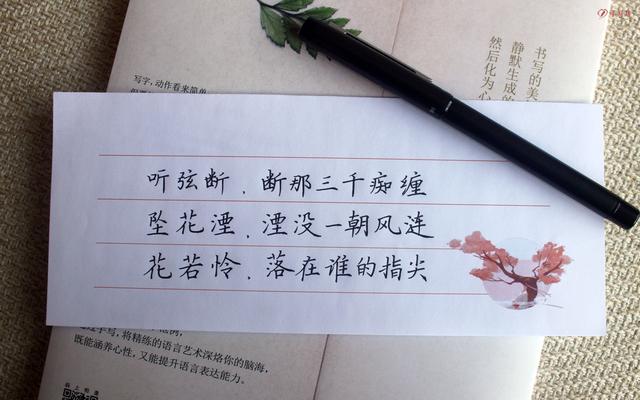 书写的美
静默生成的
然后化为心
写字,动作看来简单
听弦断,断那三千痴缠
坠花湮,湮没一朝风涟
花若怜,落在谁的指尖
将精练的语言艺术深烙你的脑海,
既能涵养心性,又能提升语言表达能力。